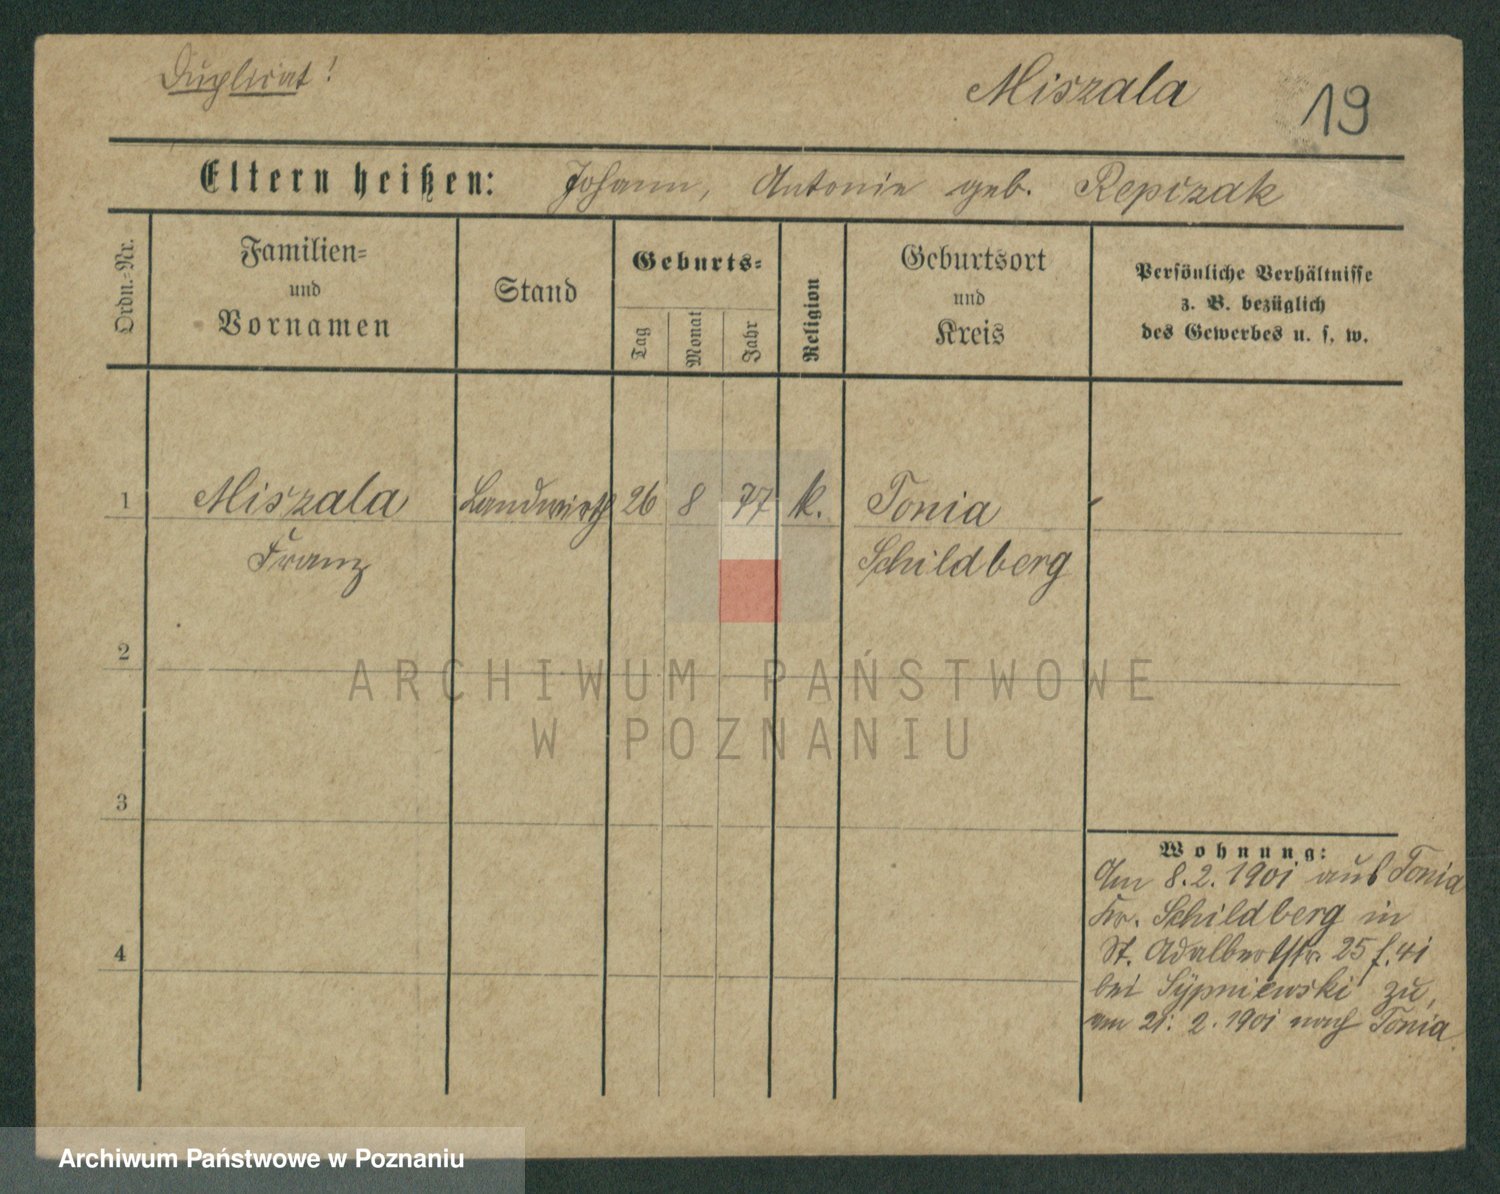 Duplicat!
Miszala
19
Eltern heißen: Johann, Antonie geb. Repczak
Ordn.-Nr.
Familien-
und
Vornamen
Stand
Geburts-
Tag
Monat
Jahr
Religion
Geburtsort
und
Kreis
Persönliche Verhältnisse
z. B. bezüglich
des Gewerbes u. s. w.
1 Miszala Landwirth 26 8 77 k. Tonia
Franz Schildberg
2
ARCHIWUM PAŃSTWOWE
W POZNANIU
3
Wohnung:
Am 8.2.1901 aus Tonia
Kr. Schildberg in
4
St. Adalbertstr. 25 f. 41
bei Sÿpniewski zu,
am 21.2.1901 nach Tonia
Archiwum Państwowe w Poznaniu